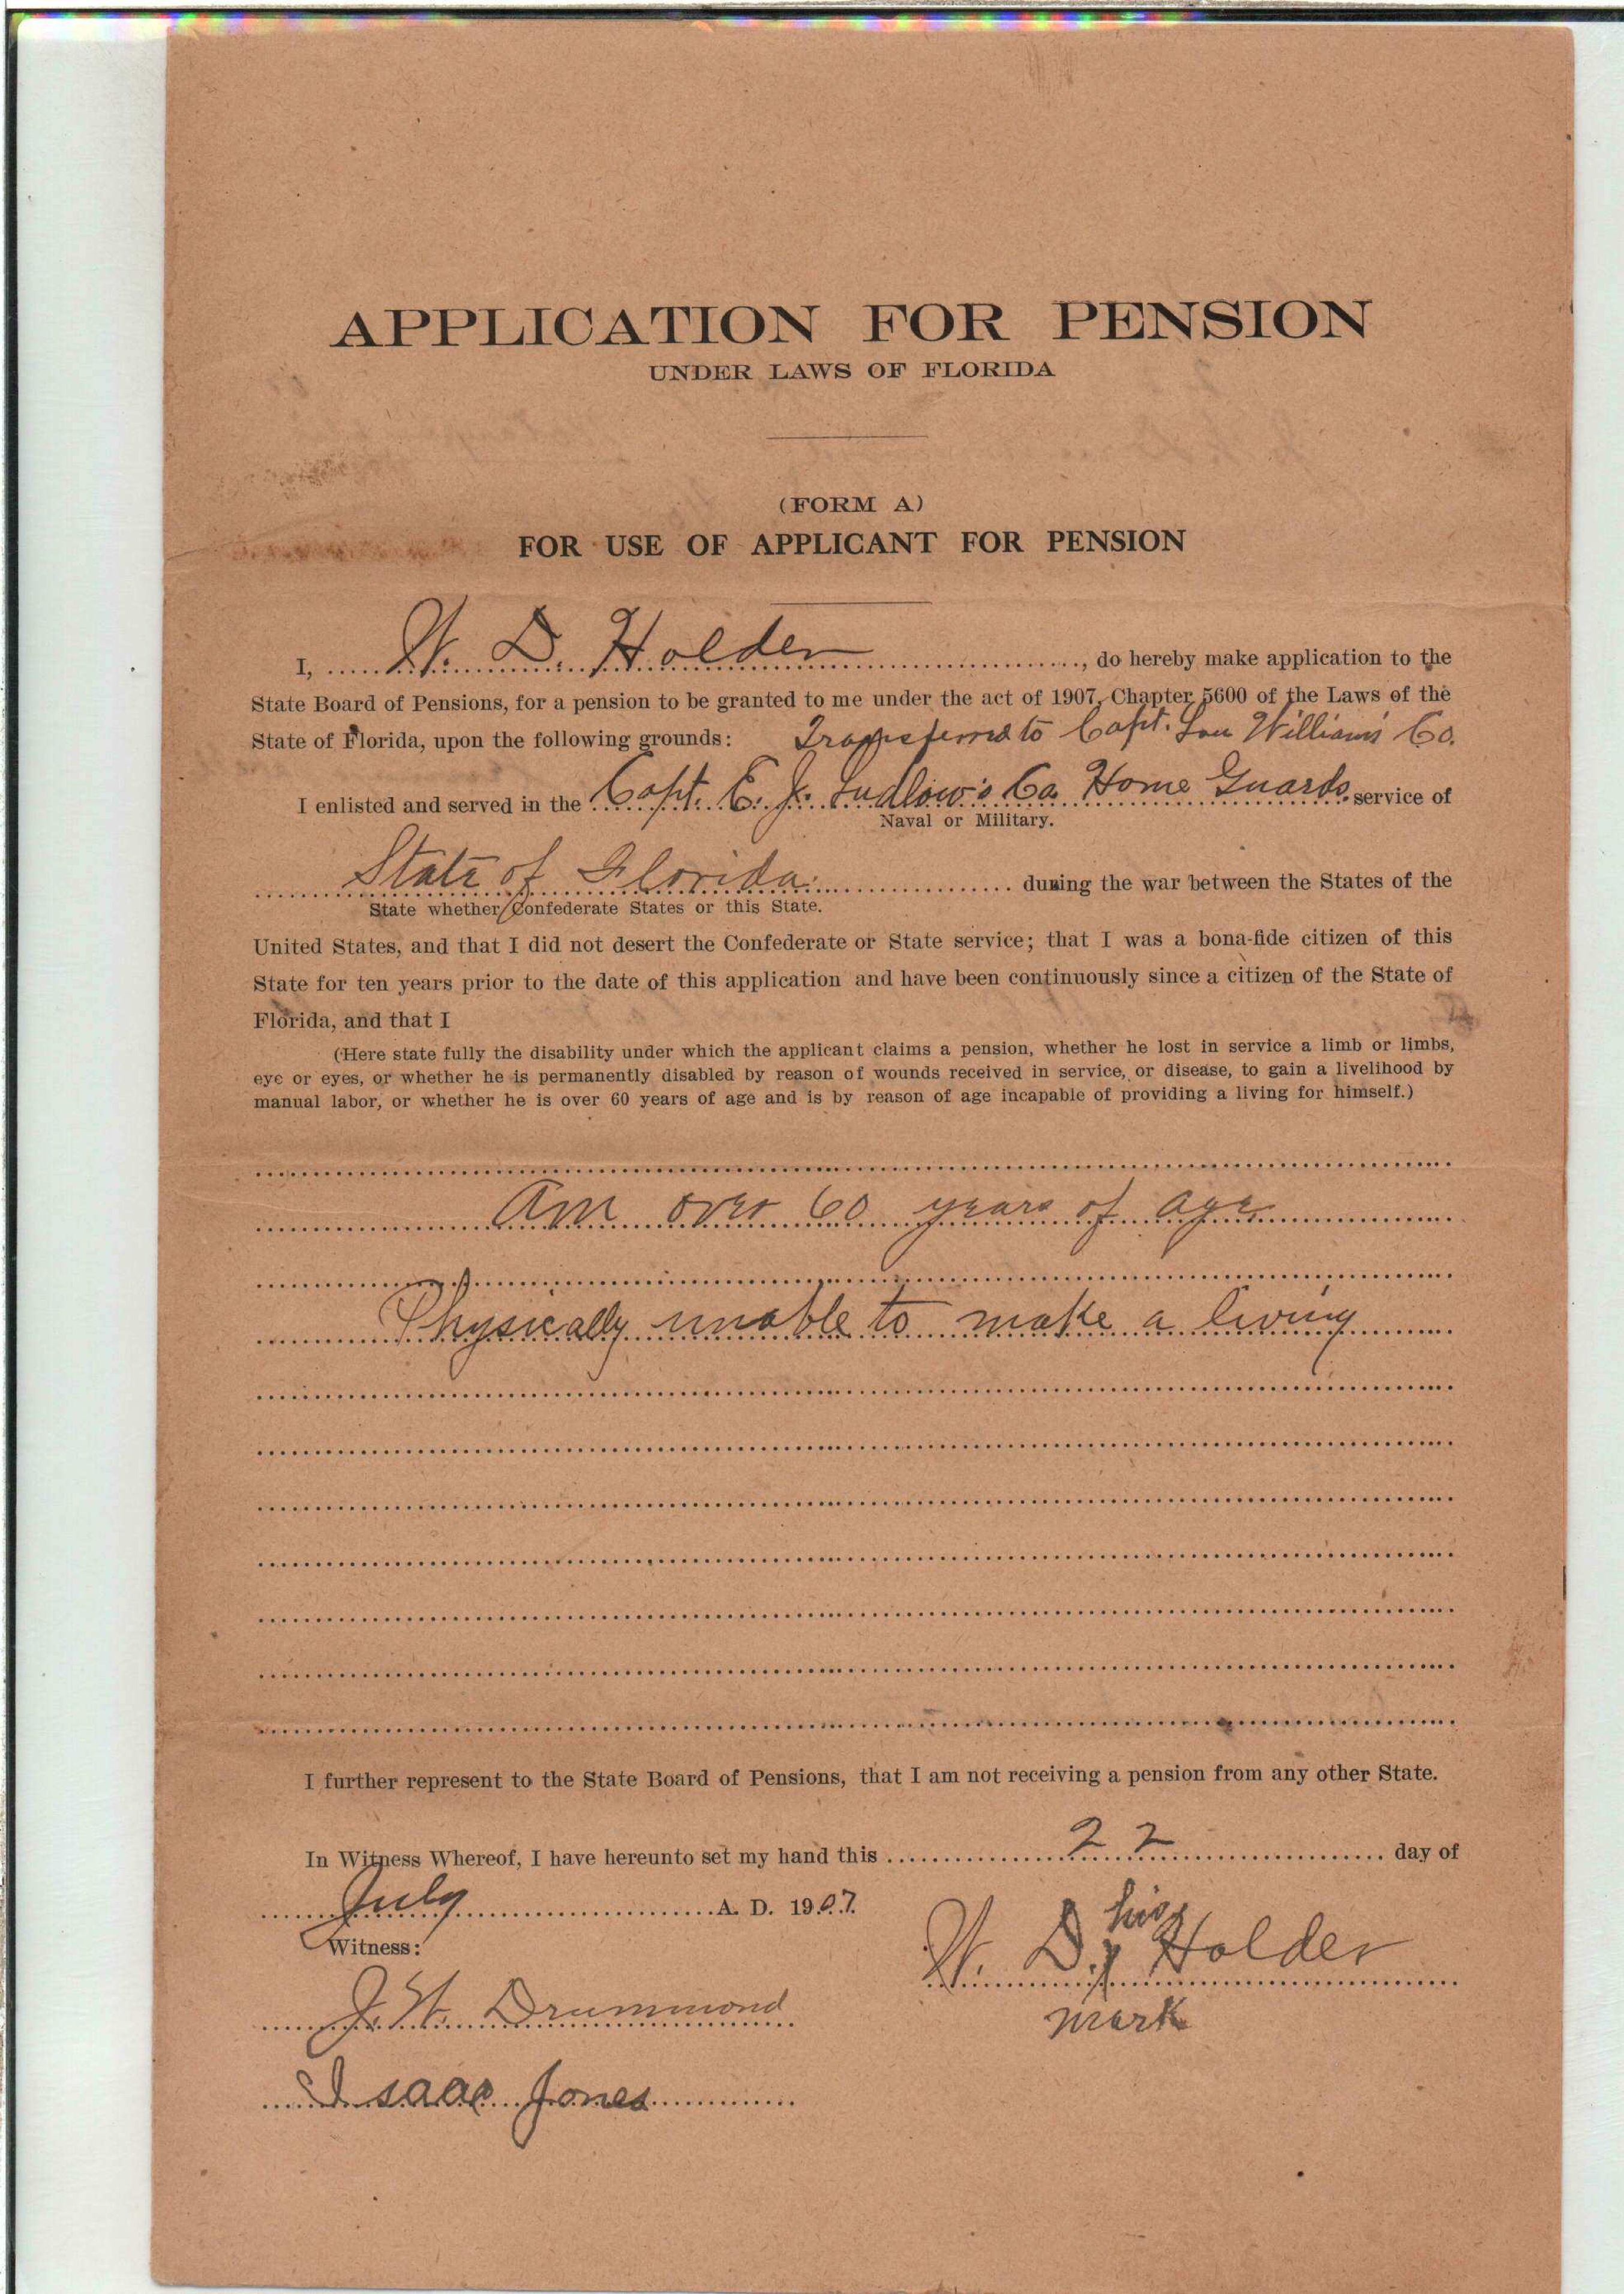 APPLICATION FOR PENSION
UNDER LAWS OF FLORIDA
(FORM A)
FOR USE OF APPLICANT FOR PENSION
I, W. D. Holder, do hereby make application to the
State Board of Pensions, for a pension to be granted to me under the act of 1907, Chapter 5600 of the Laws of the
State of Florida, upon the following grounds: Transferred to Capt. Lou Williams Co.
I enlisted and served in the Capt. E. J. Ludlow's Co Home Guards service of
Naval or Military.
State of Florida during the war between the States of the
State whether Confederate States or this State.
United States, and that I did not desert the Confederate or State service; that I was a bona-fide citizen of this
State for ten years prior to the date of this application and have been continuously since a citizen of the State of
Florida, and that I
(Here state fully the disability under which the applicant claims a pension, whether he lost in service a limb or limbs,
eye or eyes, or whether he is permanently disabled by reason of wounds received in service, or disease, to gain a livelihood by
manual labor, or whether he is over 60 years of age and is by reason of age incapable of providing a living for himself.)
Am over 60 years of age
Physically unable to make a living
I further represent to the State Board of Pensions, that I am not receiving a pension from any other State.
In Witness Whereof, I have hereunto set my hand this 22 day of
July A. D. 1907.
his
Witness:
W. D. x Holder
mark
J. W. Drummond
Isaac Jones